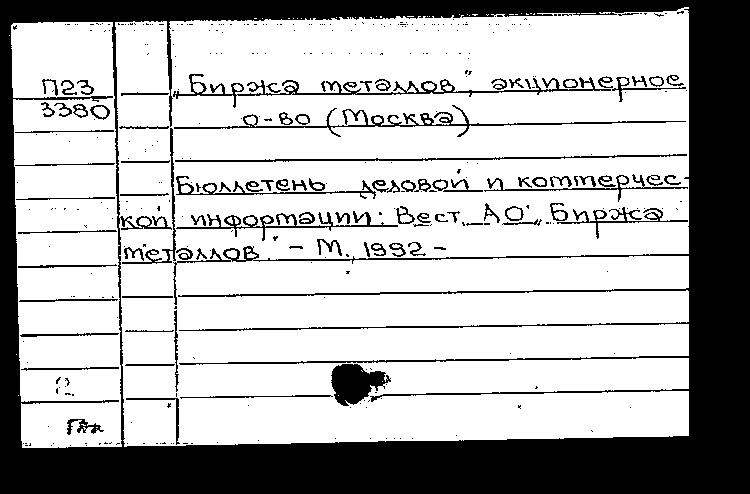 П23
3380
„Биржа металлов", акционерное
о-во (Москва)
Бюллетень деловой и коммерчес-
кой информации: Вест. АО „Биржа
металлов." – М., 1992 –
2